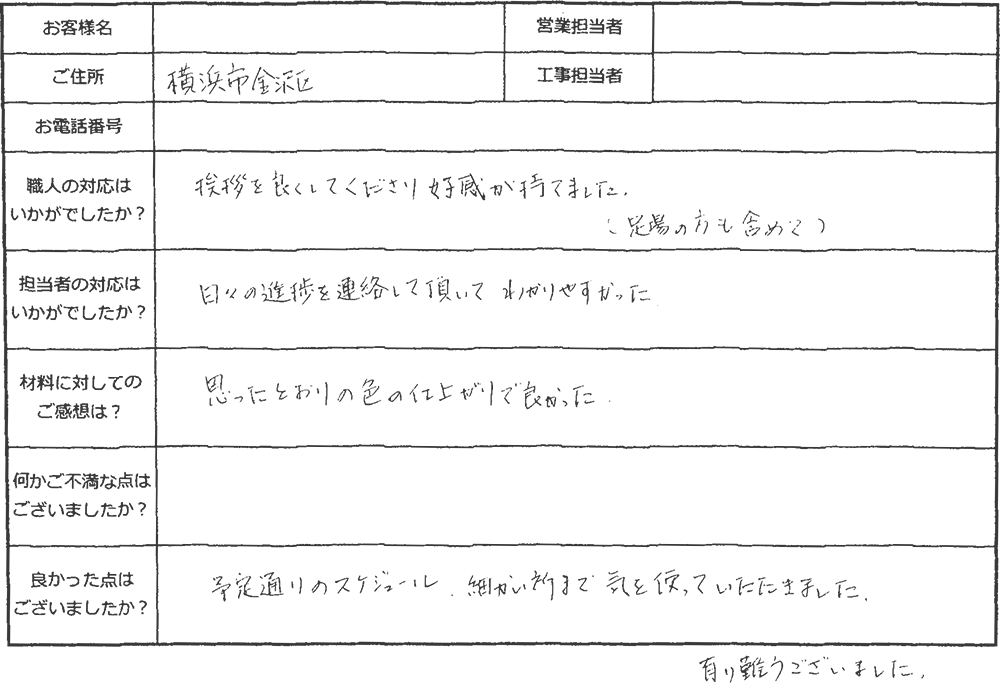 お客様名 営業担当者
ご住所 横浜市金沢区 工事担当者
お電話番号
職人の対応は
いかがでしたか？
挨拶を良くしてくださり好感が持てました。
（足場の方も含めて）
担当者の対応は
いかがでしたか？
日々の進捗を連絡して頂いてわかりやすかった
材料に対しての
ご感想は？
思ったとおりの色の仕上がりで良かった。
何かご不満な点は
ございましたか？
良かった点は
ございましたか？
予定通りのスケジュール、細かい所まで気を使っていただきました。
有り難うございました。